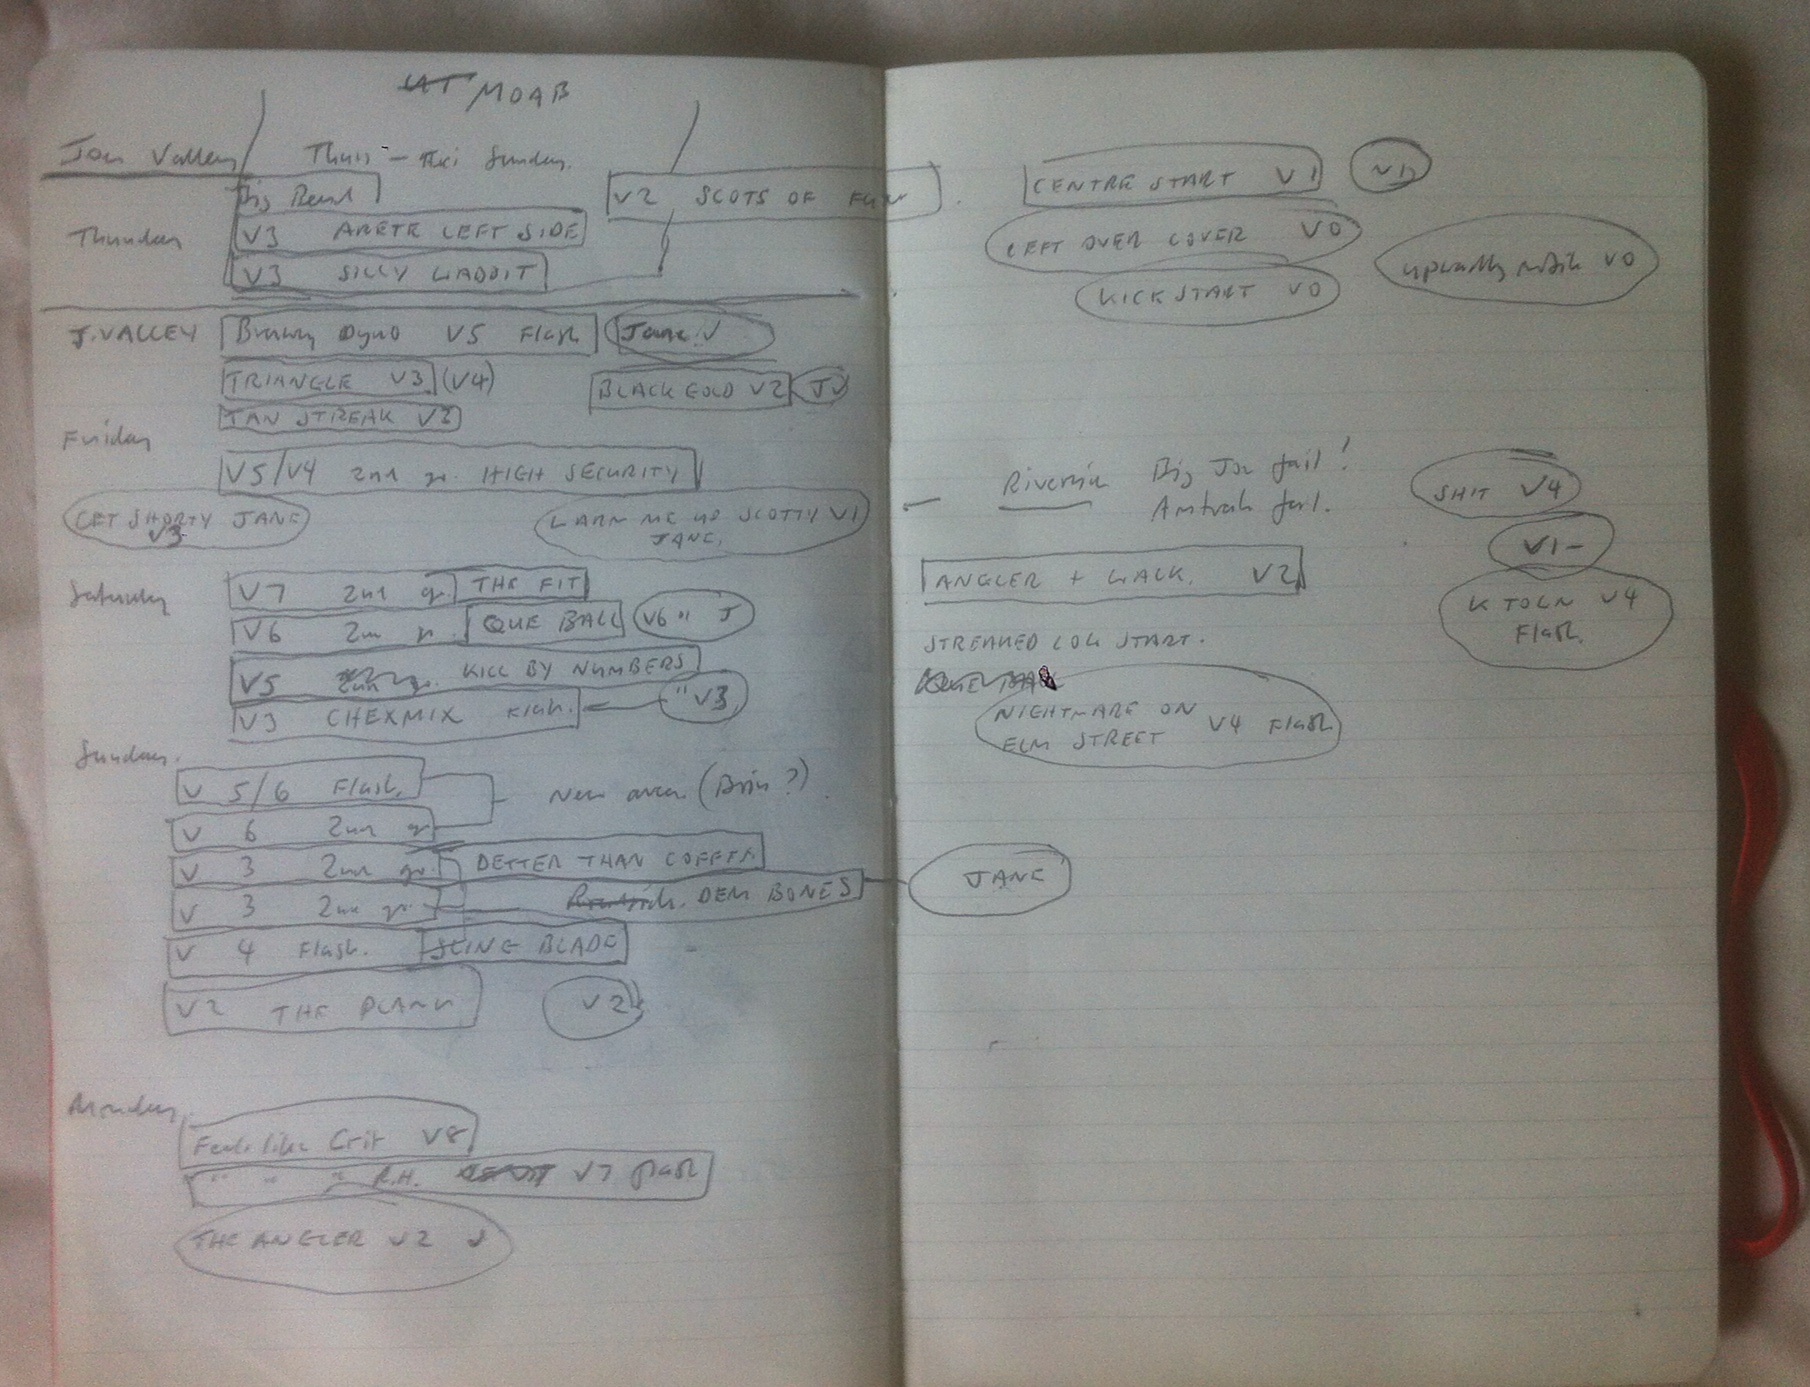 MOAB
Joes Valley Thurs - Sunday.
Big Bend V2 SCOTS OF
Thursday V3 ARETE LEFT SIDE
V3 SILLY
J. VALLEY Dyno V5 Flash Jane
TRIANGLE V3 (V4) BLACK GOLD V2 J
TAN STREAK V3
Friday
V5/V4 2nd go. HIGH SECURITY
GET SHORTY JANE ME UP SCOTTY V1
V3 JANE.
Saturday V7 2nd go. THE FIT
V6 2nd go. QUE BALL V6 " J
V5 KILL BY NUMBERS
V3 CHEXMIX Flash. " V3
Sunday.
V 5/6 Flash. New area (?)
V 6 2nd go
V 3 2nd go. BETTER THAN COFFEE.
V 3 2nd go. DEM BONES
V 4 Flash. SLING BLADE
V2 THE PLANK V2
Monday.
Feels like Grit V8
" " " R.H. V7 flash
THE ANGLER V2 J
CENTRE START V1
LEFT OVER LOVER V0
upwardly mobile V0
KICK START V0
Riverside Big Joe fail!
Amtrak fail.
SHIT V4
V1-
ANGLER + WALK. V2
V4
Flash.
STREAKED LOW START.
NIGHTMARE ON
ELM STREET V4 Flash
JANE